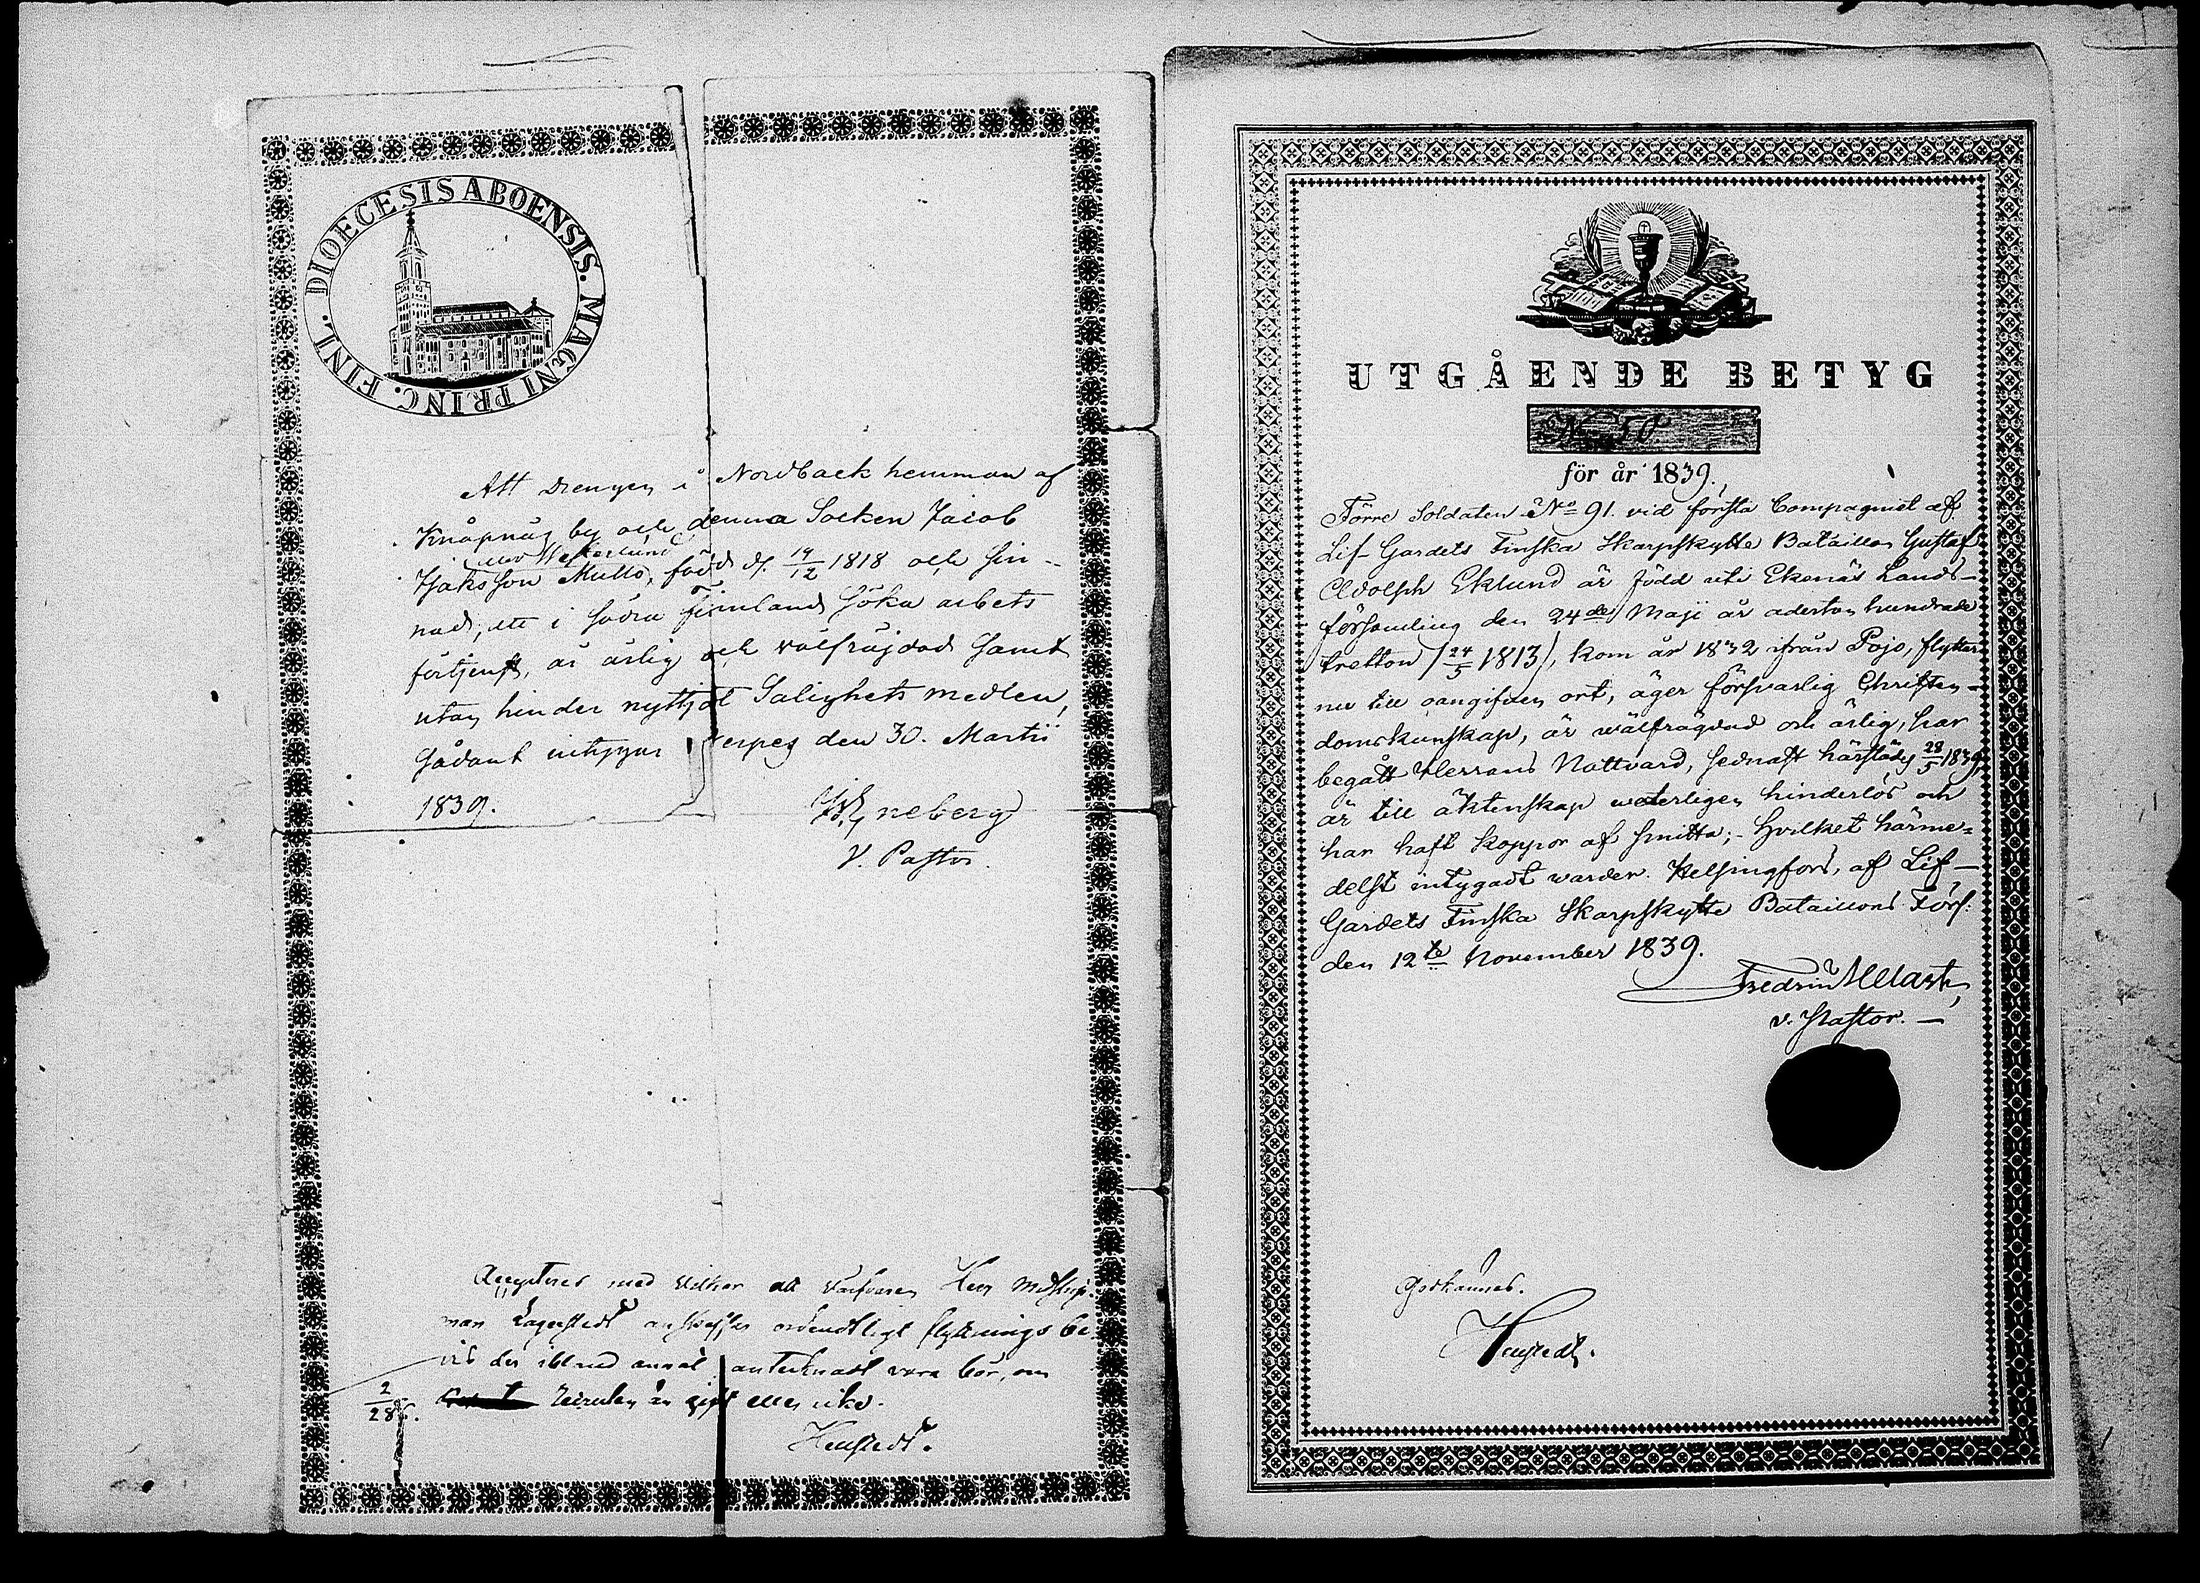 DIOECESIS ABOENSIS. MAGNI PRINC. FINL.
Att Drengen i Nordback hemman af
Knåpnäs by och denna Socken Jacob
eller Westerlund
Isaksson Mullo, född d. 14/12 1818 och sin-
nad, att i Södra Finland söka arbets
förtjenst, är ärlig och välfräjdad samt
utan hinder nyttjat Salighets medlen,
Sådant intygar Nerpes den 30. Martii
1839.
W. Eneberg
V. Pastor.
Accepteras med vilkor att Herr
man Lagerstedt anskaffar ordentligt flyttnings be-
vis der ibland annat antecknadt vara bör, om
är gift eller icke.
2/28
UTGÅENDE BETYG
No 50
för år 1839.
Förre Soldaten No 91. vid första Compagniet af
Lif-Gardets Finska Skarpskytte Bataillon Gustaf
Adolph Eklund är född uti Ekenäs Lands-
församling den 24de Maji år aderton hundrade
tretton (24/5 1813), kom år 1832 ifrån Pojo, flyttar
nu till oangifven ort, äger försvarlig Christen-
domskunskap, är wälfrägdad och ärlig, har
begått Herrans Nattvard, sednast härstädes 28/5 1839,
är till äktenskap weterligen hinderlös och
har haft koppor af smitta; - Hvilket härme-
delst intygadt warder. Helsingfors, af Lif-
Gardets Finska Skarpskytte Bataillons Förs:
den 12te November 1839.
v. Pastor. —
Godkännes.